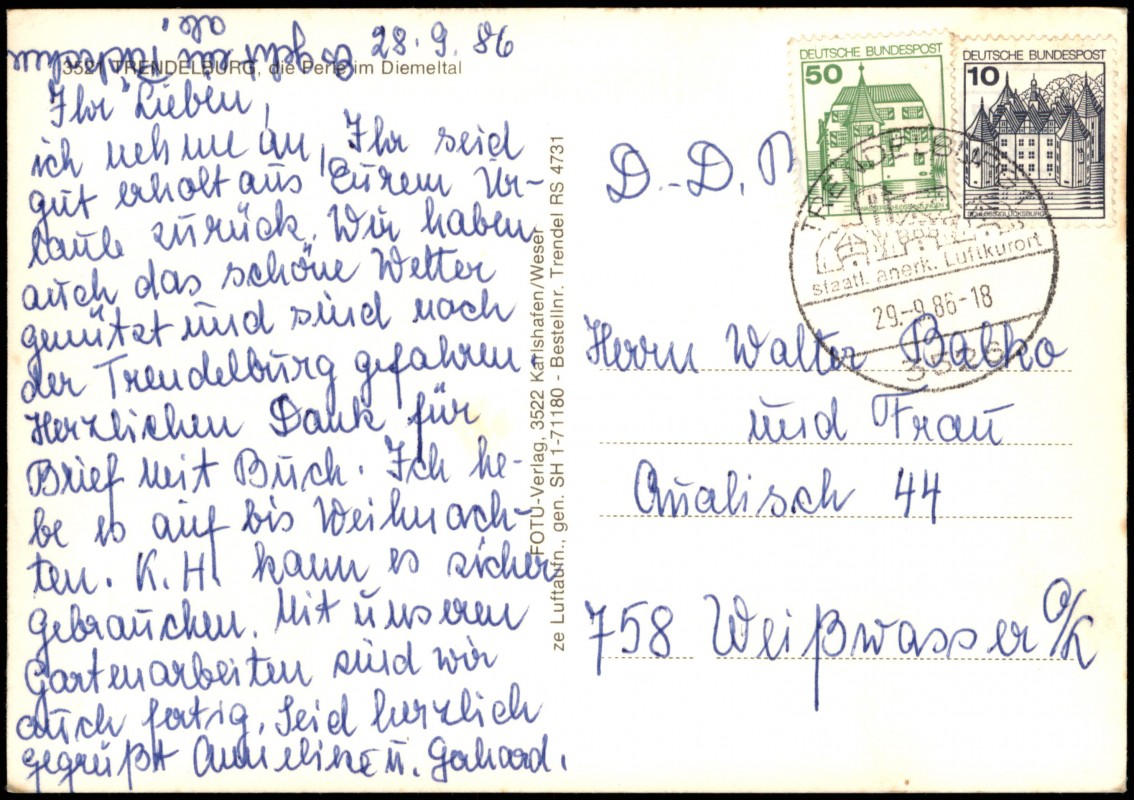 28.9.86
3521 TRENDELBURG, die Perle im Diemeltal
Ihr Lieben,
ich nehme an, Ihr seid
gut erholt aus Eurem Ur-
laub zurück. Wir haben
auch das schöne Wetter
genützt und sind nach
der Trendelburg gefahren
Herzlichen Dank für
Brief mit Buch. Ich he-
be es auf bis Weihnach-
ten. K.H. kann es sicher
gebrauchen. Mit unseren
Gartenarbeiten sind wir
auch fertig. Seid herzlich
gegrüßt Anneliese u. Gerhard.
Es geht
alle
FOTU-Verlag, 3522 Karlshafen/Weser
ze Luftaufn., gen. SH 1-71180 - Bestellnr. Trendel RS 4731
DEUTSCHE BUNDESPOST
50
DEUTSCHE BUNDESPOST
10
SCHLOSS GLÜCKSBURG
TRENDELBURG
staatl. anerk. Luftkurort
29.-9.86-18
3526
D.-D.
Herrn Walter Babko
und Frau
Qualisch 44
758 Weißwasser O/L